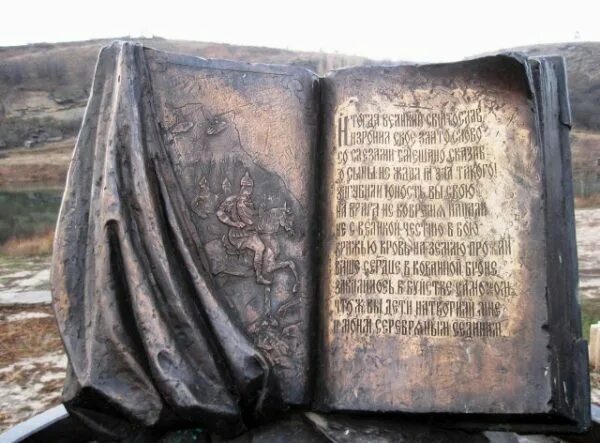 И тогда великий Святослав
изронил свое злато слово
со слезами смешано сказав
о сыны не ждал я зла такого!
загубили юность вы свою
на врага не вовремя напали
не с великой честию в бою
вражью кровь на землю проляли
ваше сердце в кованной броне
закалилось в буйстве самохоль
что ж вы дети натворили мне
и моим серебряным сединам